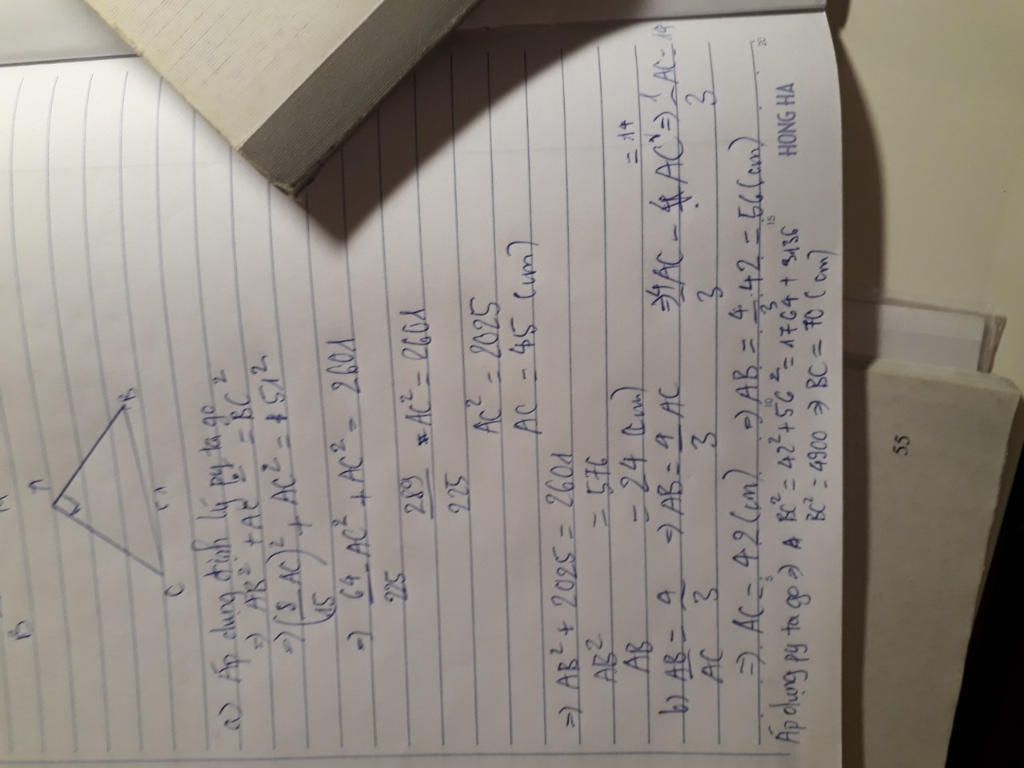 B
A
B
C
a) Áp dụng định lý pytago
=> AB² + AC² = BC²
=> (8/15 AC)² + AC² = 51²
=> 64/225 AC² + AC² = 2601
289/225 AC² = 2601
AC² = 2025
AC = 45 (cm)
=> AB² + 2025 = 2601
AB² = 576
AB = 24 (cm)
b) AB/AC = 4/3 => AB = 4/3 AC => 4/3 AC - AC = 14 => 1/3 AC = 14
=> AC = 42 (cm) => AB = 4/3 . 42 = 56 (cm)
Áp dụng pytago => BC² = 42² + 56² = 1764 + 3136
BC² = 4900 => BC = 70 (cm)
5
10
15
20
HONG HA
55